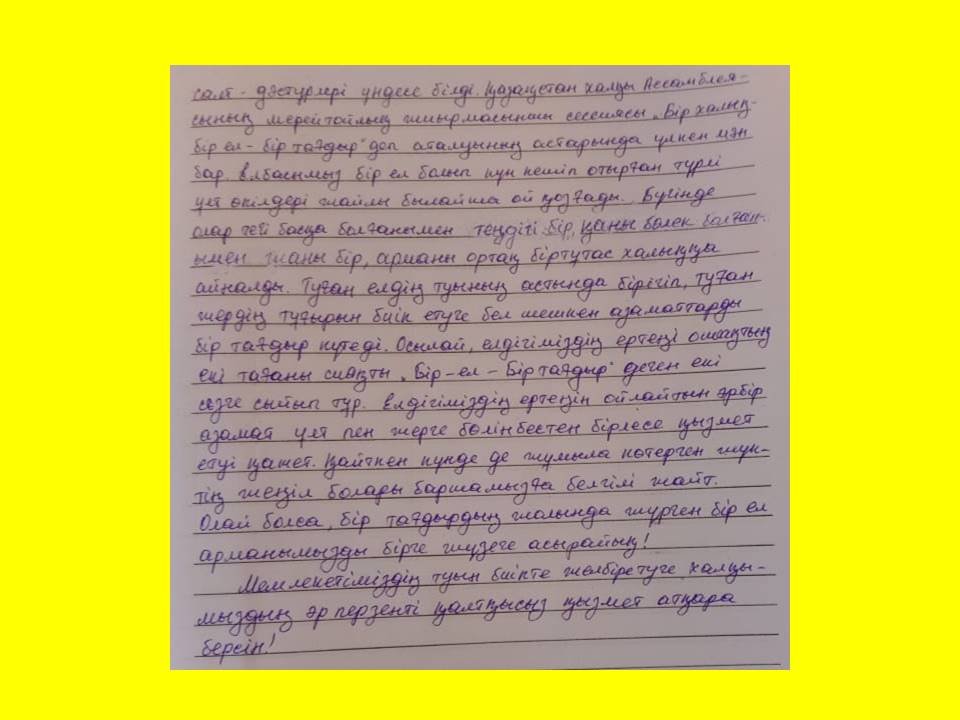 салт - дәстүрлері үндесе білді. Қазақстан халқы Ассамблея-
сының мерейтойлық жиырмасыншы сессиясы „Бір халық-
бір ел - бір тағдыр" деп аталуының астарында үлкен мән
бар. Елбасымыз бір ел болып күн кешіп отырған түрлі
ұлт өкілдері жайлы былайша ой қозғады. Бүгінде
олар тегі басқа болғанымен теңдігі бір, қаны бөлек болған-
ымен жаны бір, арманы ортақ біртұтас халыққа
айналды. Туған елдің туының астында бірігіп, туған
жердің тұғырын биік етуге бел шешкен азаматтарды
бір тағдыр күтеді. Осылай, елдігіміздің ертеңі ошақтың
екі тағаны сияқты „Бір-ел - Бір тағдыр" деген екі
сөзге сыйып тұр. Елдігіміздің ертеңін ойлайтын әрбір
азамат ұлт пен жерге бөлінбестен бірлесе қызмет
етуі қажет. Қайткен күнде де жұмыла көтерген жүк-
тің жеңіл болары баршамызға белгілі жайт.
Олай болса, бір тағдырдың жолында жүрген бір ел
арманымызды бірге жүзеге асырайық!
Мемлекетіміздің туын биікте желбіретуге халқы-
мыздың әр перзенті қалтқысыз қызмет атқара
берсін!